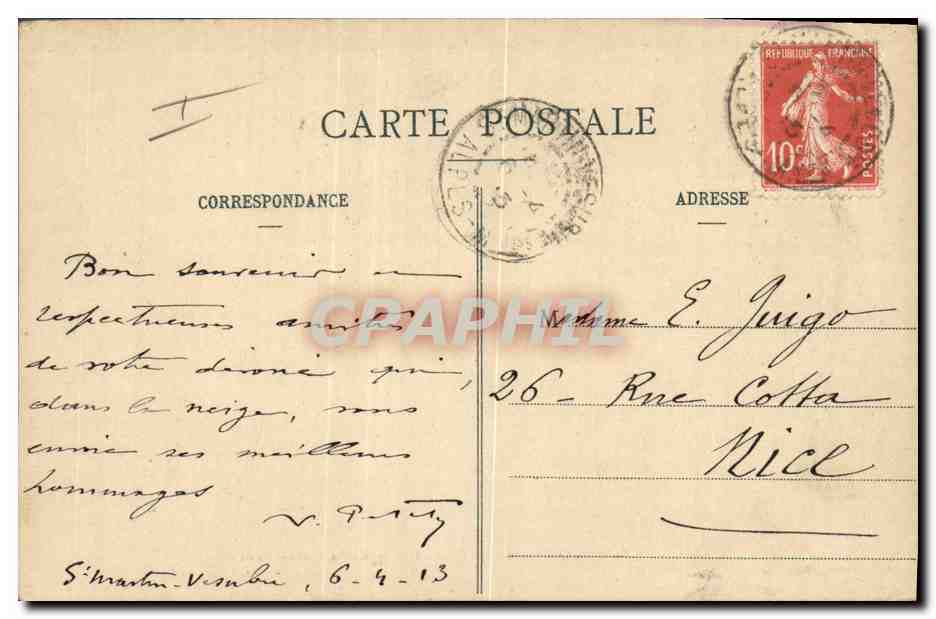 CARTE POSTALE
CORRESPONDANCE
ADRESSE
REPUBLIQUE FRANÇAISE
10c
POSTES
ALPES-M
Bon souvenir en
respectueuses amitiés
de votre dévoué qui,
dans la neige, vous
envoie ses meilleurs
hommages
V.
St Martin-Vesubie, 6-4-13
Madame E. Guigo
26 - Rue Cotta
Nice
CPAPHIL